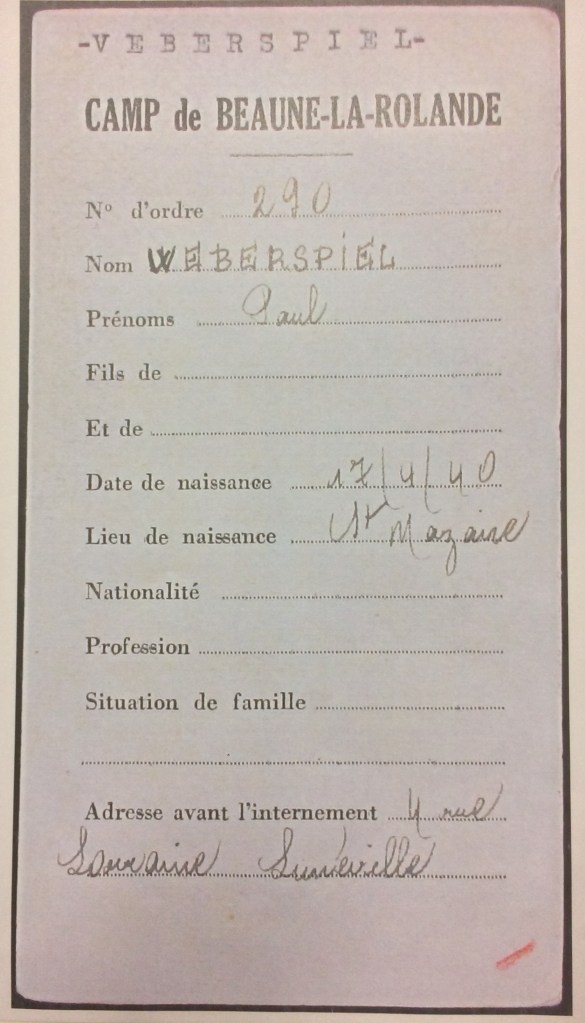 -VEBERSPIEL-
CAMP de BEAUNE-LA-ROLANDE
N° d'ordre 290
Nom WEBERSPIEL
Prénoms Paul
Fils de
Et de
Date de naissance 17/4/40
Lieu de naissance St Nazaire
Nationalité
Profession
Situation de famille
Adresse avant l'internement 4 rue
Lorraine Lunéville